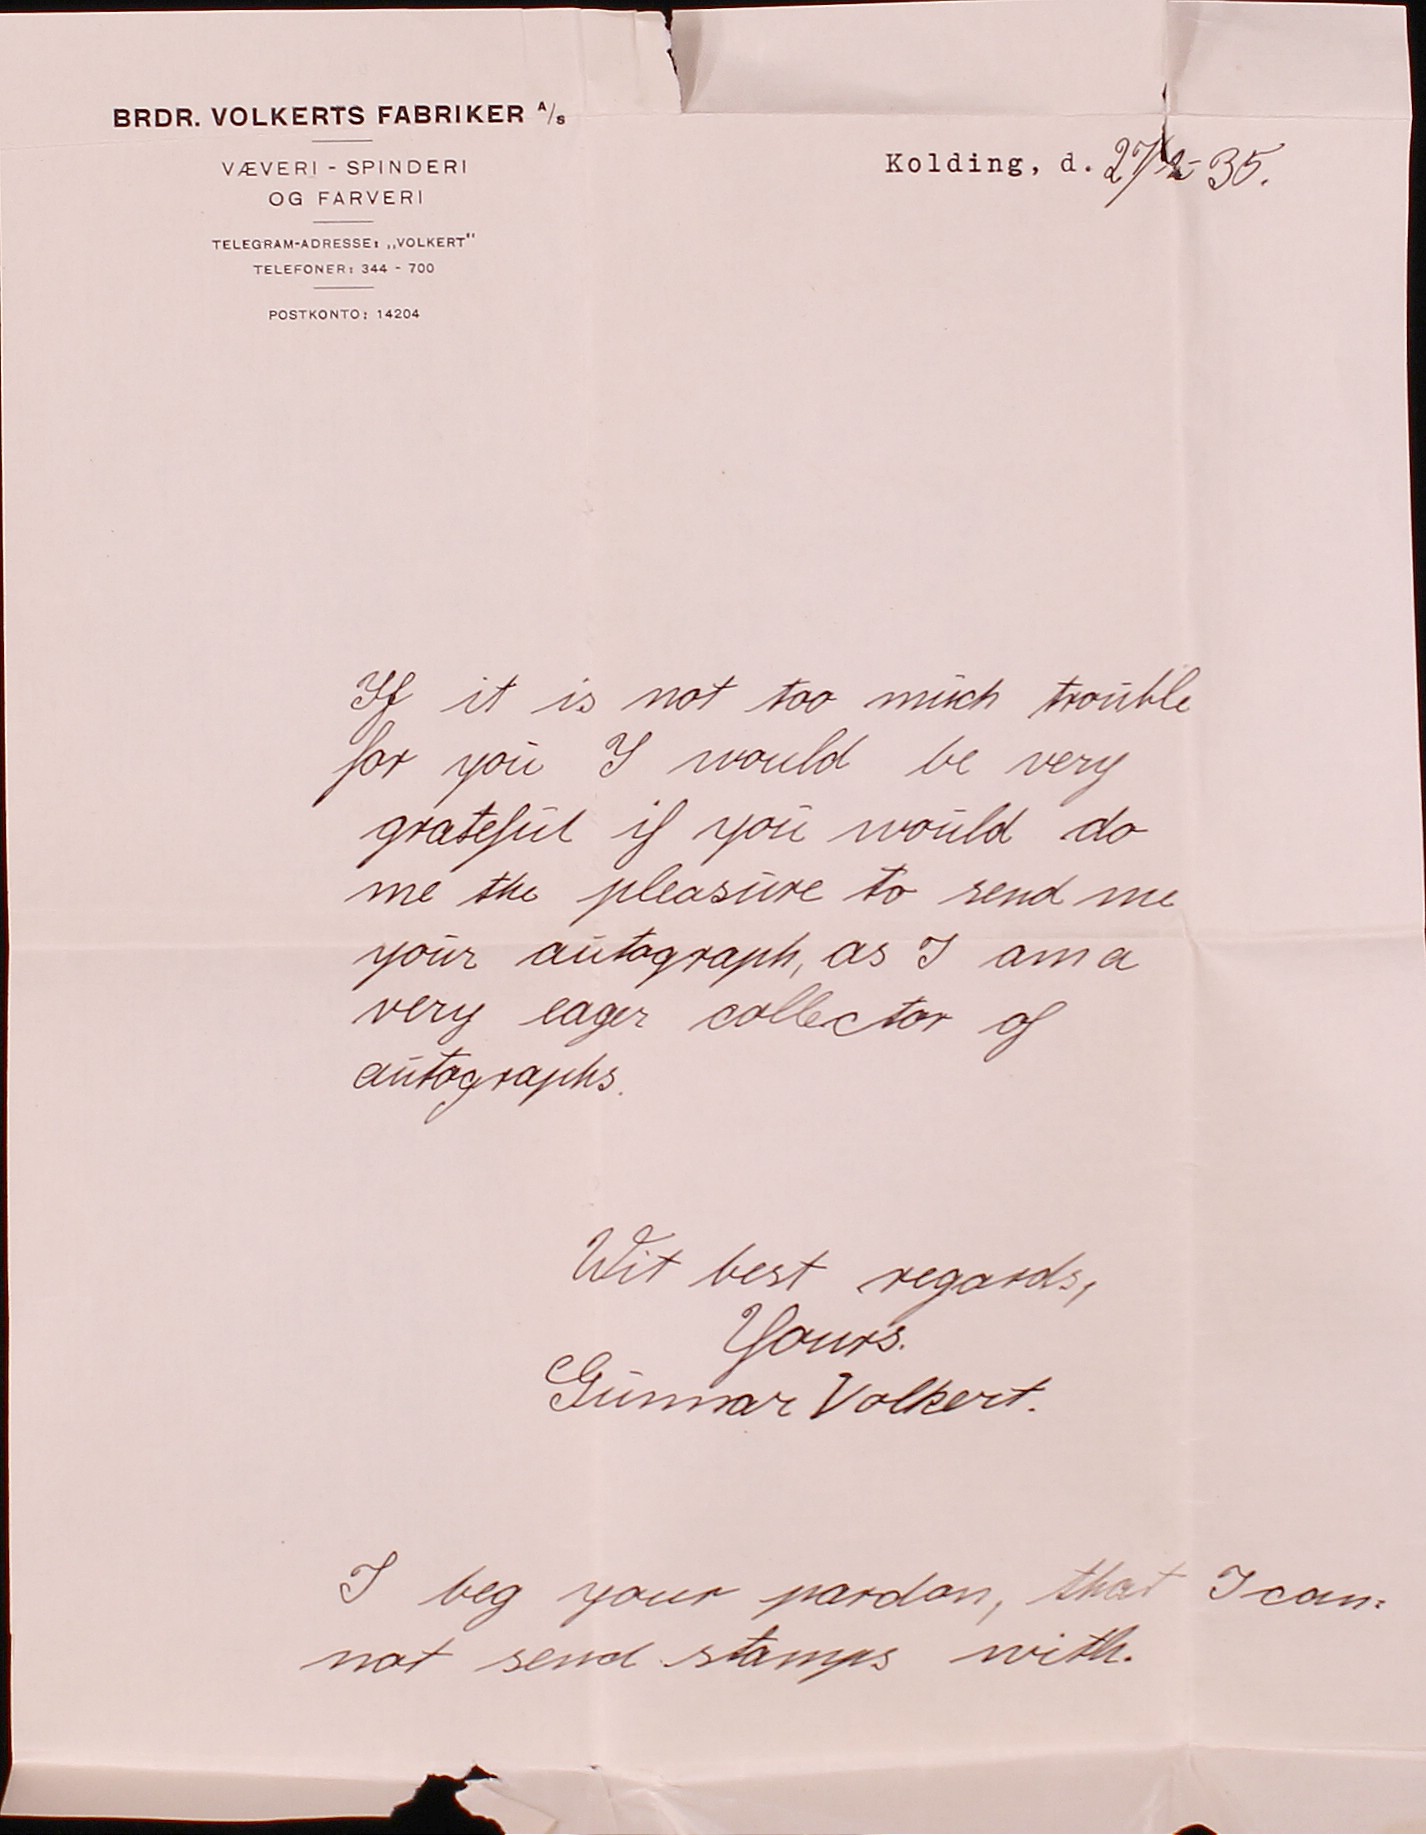 BRDR. VOLKERTS FABRIKER A/S
VÆVERI - SPINDERI
OG FARVERI
TELEGRAM-ADRESSE: „VOLKERT"
TELEFONER: 344 - 700
POSTKONTO: 14204
Kolding, d. 27/2-35.
If it is not too much trouble
for you I would be very
grateful if you would do
me the pleasure to send me
your autograph, as I am a
very eager collector of
autographs.
Wit best regards,
Yours.
Gunnar Volkert.
I beg your pardon, that I can=
not send stamps with.